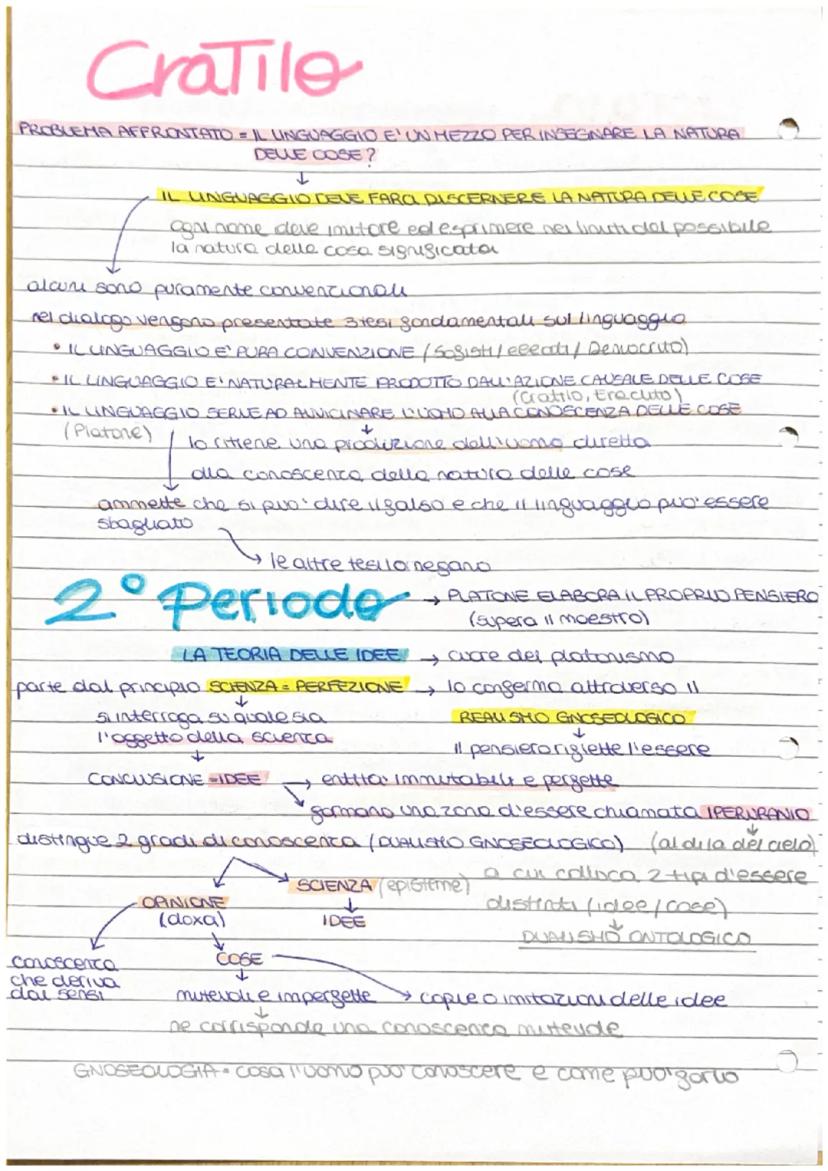 Cratilo
PROBLEMA AFFRONTATO = IL LINGUAGGIO E' UN MEZZO PER INSEGNARE LA NATURA
DELLE COSE?
↓
IL LINGUAGGIO DEVE FARCI DISCERNERE LA NATURA DELLE COSE
ogni nome deve imitare ed esprimere nei limiti del possibile
la natura della cosa significata
alcuni sono puramente convenzionali
nel dialogo vengono presentate 3 tesi fondamentali sul linguaggio
• IL LINGUAGGIO E' PURA CONVENZIONE (Sofisti/eleati/Democrito)
• IL LINGUAGGIO E' NATURALMENTE PRODOTTO DALL'AZIONE CAUSALE DELLE COSE
(Cratilo, Eraclito)
• IL LINGUAGGIO SERVE AD AVVICINARE L'UOMO ALLA CONOSCENZA DELLE COSE
(Platone) ↓
lo ritiene una produzione dell'uomo diretta
alla conoscenza della natura delle cose
ammette che si puo' dire il falso e che il linguaggio puo' essere
sbagliato
→ le altre tesi lo negano
2° Periodo → PLATONE ELABORA IL PROPRIO PENSIERO
(supera il maestro)
LA TEORIA DELLE IDEE → cuore del platonismo
parte dal principio SCIENZA = PERFEZIONE → lo conferma attraverso il
si interroga su quale sia REALISMO GNOSEOLOGICO
l'oggetto della scienza ↓
↓ il pensiero riflette l'essere
CONCLUSIONE = IDEE → entita' immutabili e perfette
→ formano una zona d'essere chiamata IPERURANIO
distingue 2 gradi di conoscenza (DUALISMO GNOSEOLOGICO) (al di la del cielo)
SCIENZA (episteme) a cui colloca 2 tipi d'essere
OPINIONE ↓ distinti (idee/cose)
(doxa) IDEE ↓
DUALISMO ONTOLOGICO
conoscenza COSE
che deriva ↓
dai sensi mutevoli e imperfette → copie o imitazioni delle idee
↓
ne corrisponde una conoscenza mutevole
GNOSEOLOGIA = cosa l'uomo puo' conoscere e come puo' farlo